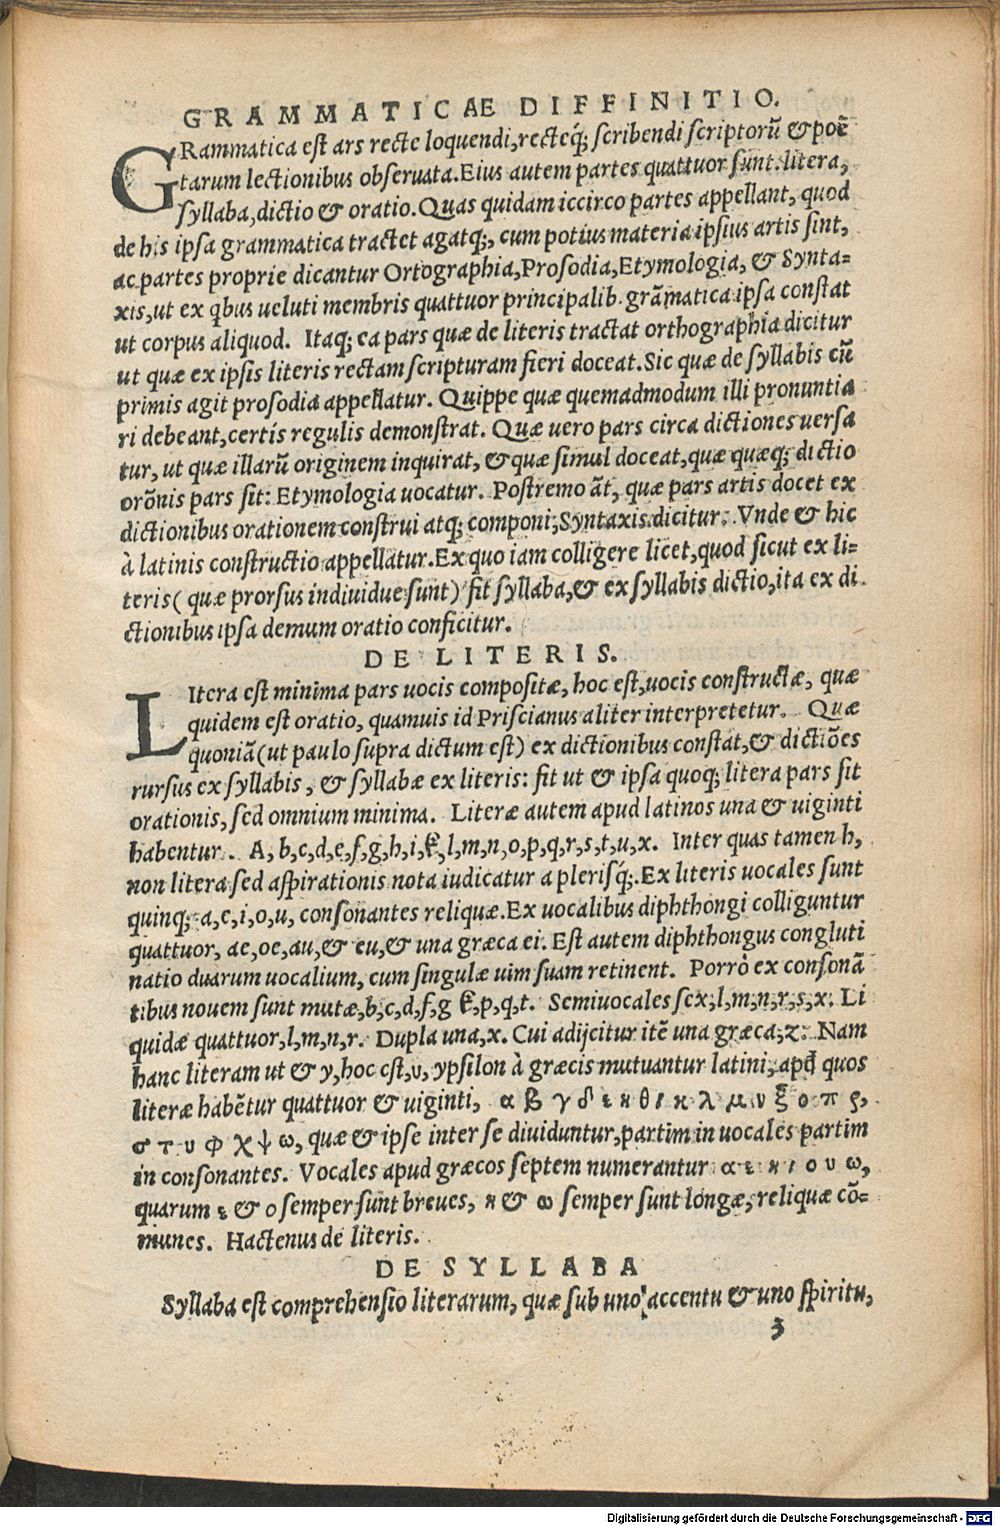 GRAMMATICAE DIFFINITIO.
GRammatica est ars recte loquendi, recteq́; scribendi scriptorũ & poë
tarum lectionibus obseruata. Eius autem partes quattuor sunt. litera,
syllaba, dictio & oratio. Quas quidam iccirco partes appellant, quod
de his ipsa grammatica tractet agatq́;, cum potius materia ipsius artis sint,
ac partes proprie dicantur Ortographia, Prosodia, Etymologia, & Synta-
xis, ut ex qbus ueluti membris quattuor principalib. grãmatica ipsa constat
ut corpus aliquod. Itaq; ea pars quæ de literis tractat orthographia dicitur
ut quæ ex ipsis literis rectam scripturam fieri doceat. Sic quæ de syllabis cũ
primis agit prosodia appellatur. Quippe quæ quemadmodum illi pronuntia
ri debeant, certis regulis demonstrat. Quæ uero pars circa dictiones uersa
tur, ut quæ illarũ originem inquirat, & quæ simul doceat, quæ quæq; dictio
orõnis pars sit: Etymologia uocatur. Postremo ãt, quæ pars artis docet ex
dictionibus orationem construi atq; componi; Syntaxis dicitur. Vnde & hic
à latinis constructio appellatur. Ex quo iam colligere licet, quod sicut ex li-
teris ( quæ prorsus indiuiduæ sunt ) fit syllaba, & ex syllabis dictio, ita ex di
ctionibus ipsa demum oratio conficitur.
DE LITERIS.
LItera est minima pars uocis compositæ, hoc est, uocis constructæ, quæ
quidem est oratio, quamuis id Priscianus aliter interpretetur. Quæ
quoniã (ut paulo supra dictum est) ex dictionibus constat, & dictiões
rursus ex syllabis, & syllabæ ex literis: fit ut & ipsa quoq; litera pars sit
orationis, sed omnium minima. Literæ autem apud latinos una & uiginti
habentur. A, b, c, d, e, f, g, h, i, k, l, m, n, o, p, q, r, s, t, u, x. Inter quas tamen h,
non litera sed aspirationis nota iudicatur a plerisq́;. Ex literis uocales sunt
quinq; a, e, i, o, u, consonantes reliquæ. Ex uocalibus diphthongi colliguntur
quattuor, ae, oe, au, & eu, & una græca ei. Est autem diphthongus congluti
natio duarum uocalium, cum singulæ uim suam retinent. Porrò ex consonã
tibus nouem sunt mutæ, b, c, d, f, g k, p, q, t. Semiuocales sex; l, m, n, r, s, x. Li
quidæ quattuor, l, m, n, r. Dupla una, x. Cui adijcitur itẽ una græca; z. Nam
hanc literam ut & y, hoc est, υ, ypsilon à græcis mutuantur latini, apd quos
literæ habẽtur quattuor & uiginti, α β γ δ ε η θ ι κ λ μ ν ξ ο π ρ,
σ τ υ φ χ ψ ω, quæ & ipse inter se diuiduntur, partim in uocales partim
in consonantes. Vocales apud græcos septem numerantur α ε η ι ο υ ω,
quarum ε & ο semper sunt breues, η & ω semper sunt longæ, reliquæ cõ-
munes. Hactenus de literis.
DE SYLLABA
Syllaba est comprehensio literarum, quæ sub uno accentu & uno spiritu,
3
Digitalisierung gefördert durch die Deutsche Forschungsgemeinschaft - DFG